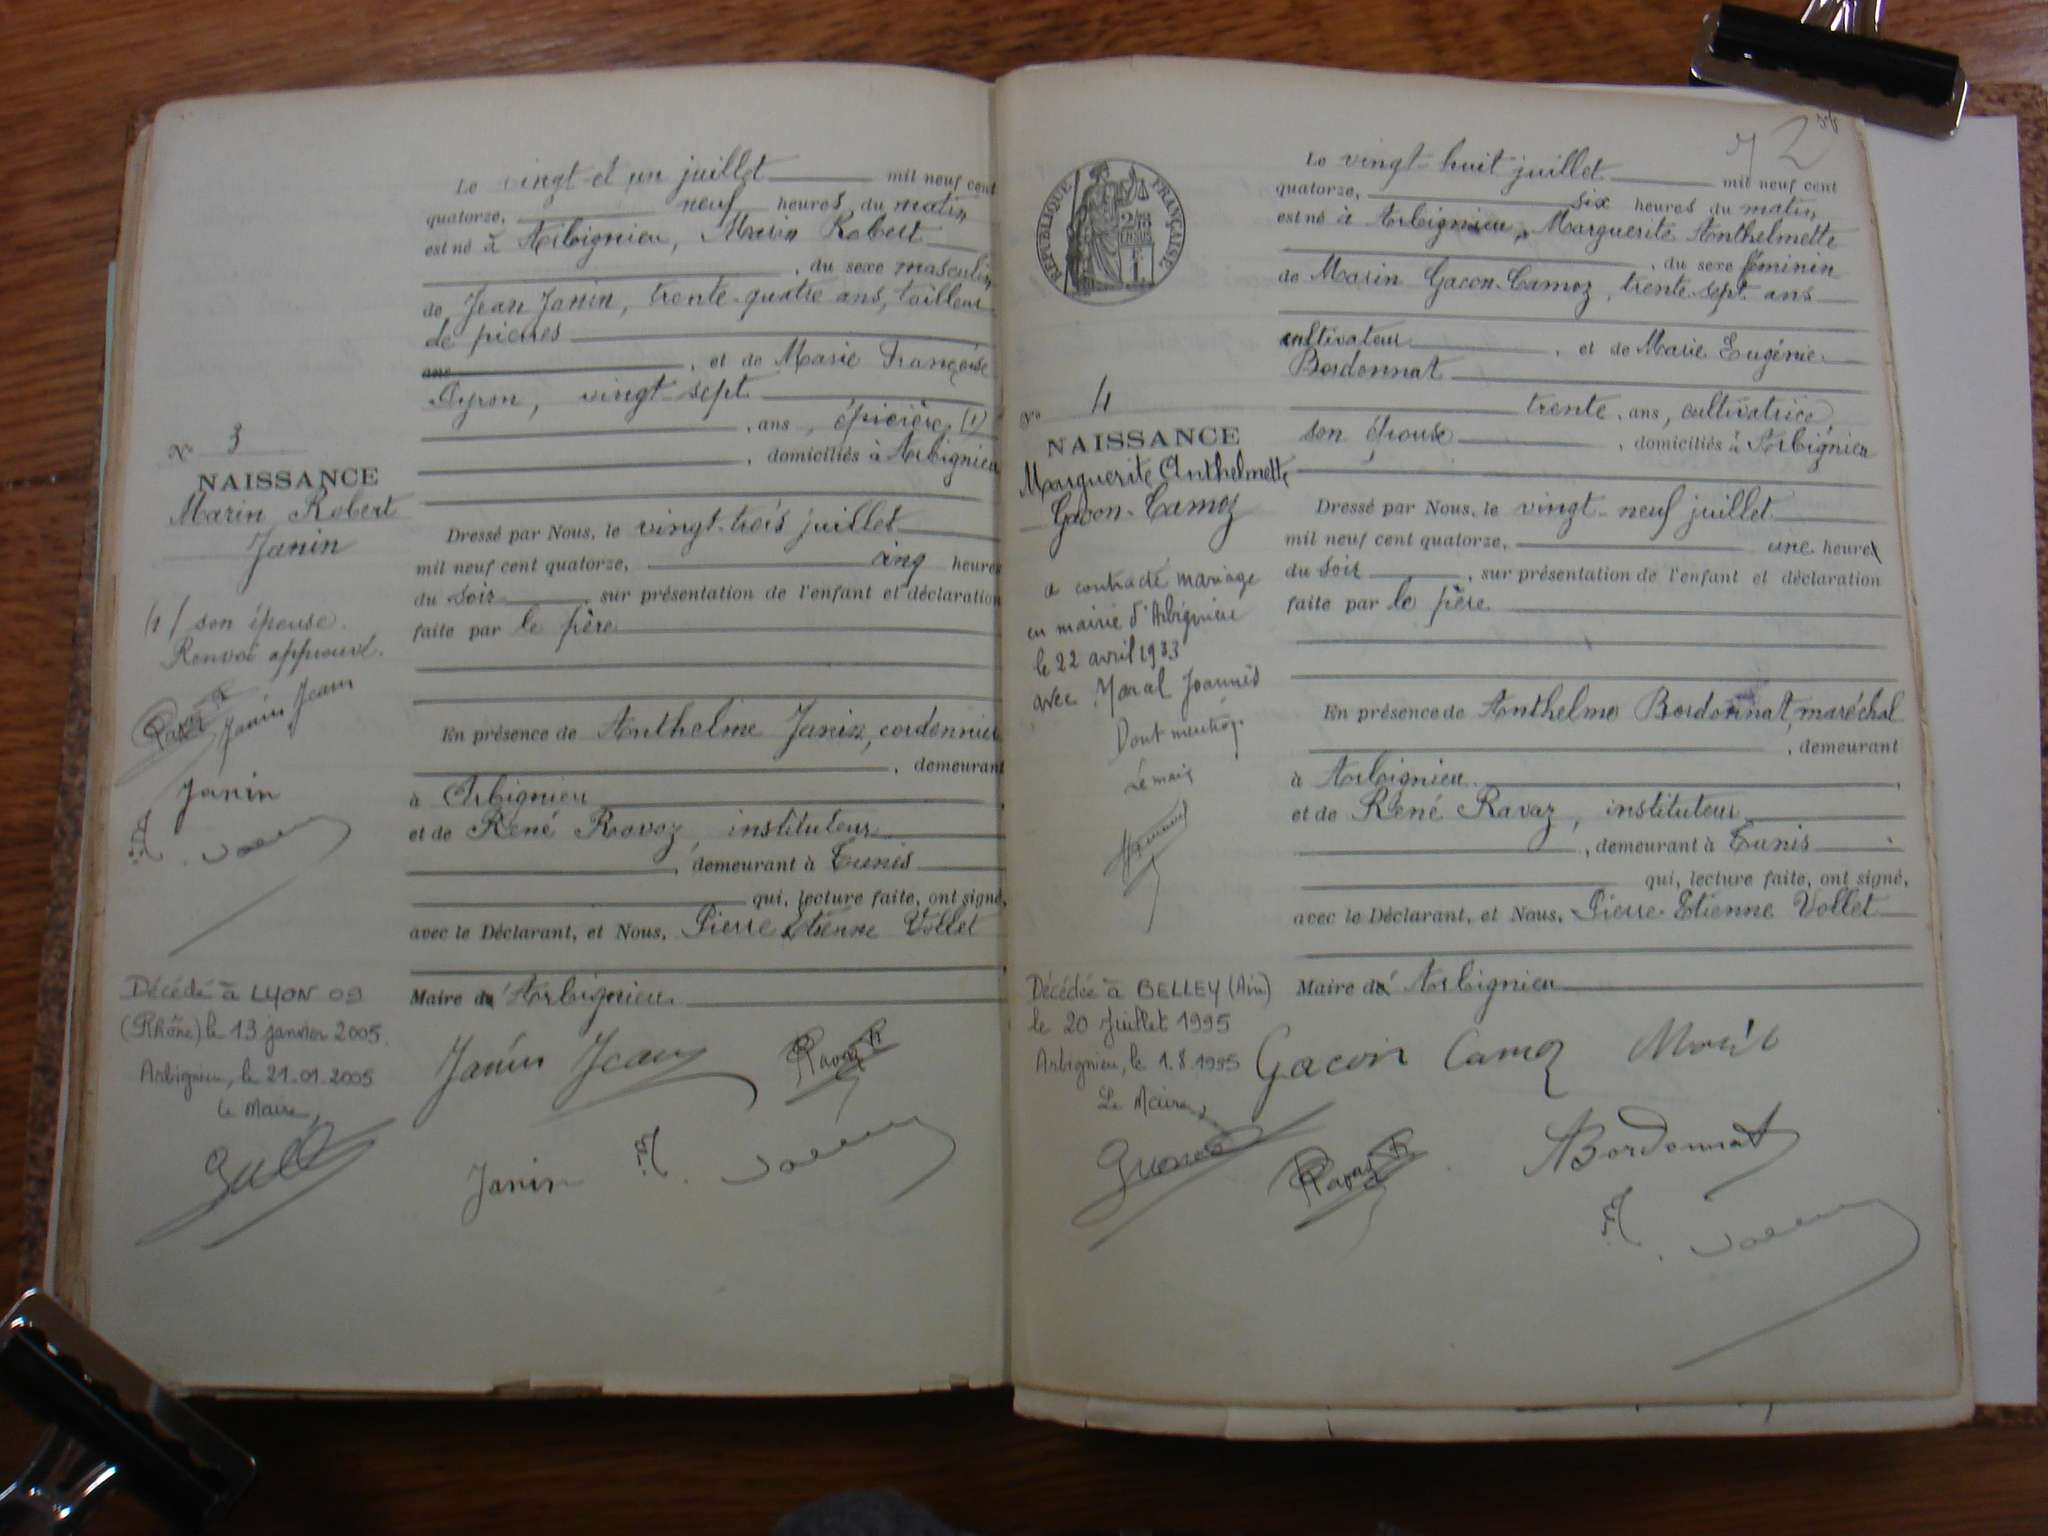 Le vingt et un juillet mil neuf cent
quatorze, neuf heures du matin
est né à Arbignieu, Marin Robert
, du sexe masculin
de Jean Janin, trente-quatre ans, tailleur
de pierres
ans, et de Marie Françoise
vingt-sept
, ans, épicière, (1)
, domiciliés à Arbignieu
Dressé par Nous, le vingt-trois juillet
mil neuf cent quatorze, cinq heures
du soir, sur présentation de l'enfant et déclaration
faite par le père
En présence de Anthelme Janin, cordonnier
, demeurant
à Arbignieu
et de René Ravaz, instituteur
, demeurant à Tunis
qui, lecture faite, ont signé,
avec le Déclarant, et Nous, Pierre Etienne Vollet
Maire d' Arbignieu
Janin Jean Ravaz R
Janin
N° 3
NAISSANCE
Marin Robert
Janin
(1) son épouse.
Renvoi approuvé.
Ravaz R Janin Jean
Janin
Décédé à LYON 09
(Rhône) le 13 janvier 2005.
Arbignieu, le 21-01-2005
Le Maire,
72
RÉPUBLIQUE FRANÇAISE
Le vingt-huit juillet mil neuf cent
quatorze, six heures du matin,
est né à Arbignieu, Marguerite Anthelmette
, du sexe féminin
de Marin Gacon-Camoz, trente-sept ans
cultivateur, et de Marie Eugénie
Bordonnat
trente, ans, cultivatrice,
son épouse, domiciliés à Arbignieu
Dressé par Nous, le vingt-neuf juillet
mil neuf cent quatorze, une heure
du soir, sur présentation de l'enfant et déclaration
faite par le père
En présence de Anthelme Bordonnat, maréchal
, demeurant
à Arbignieu,
et de René Ravaz, instituteur
, demeurant à Tunis
qui, lecture faite, ont signé,
avec le Déclarant, et Nous, Pierre-Etienne Vollet
Maire d' Arbignieu
Gacon Camoz
Ravaz R ABordonnat
N° 4
NAISSANCE
Marguerite Anthelmette
Gacon-Camoz
a contracté mariage
en mairie d'Arbignieu
le 22 avril 1933
avec Joannès
Dont mention.
Le maire
Décédée à BELLEY (Ain)
le 20 Juillet 1995
Arbignieu, le 1.8.1995
Le Maire,